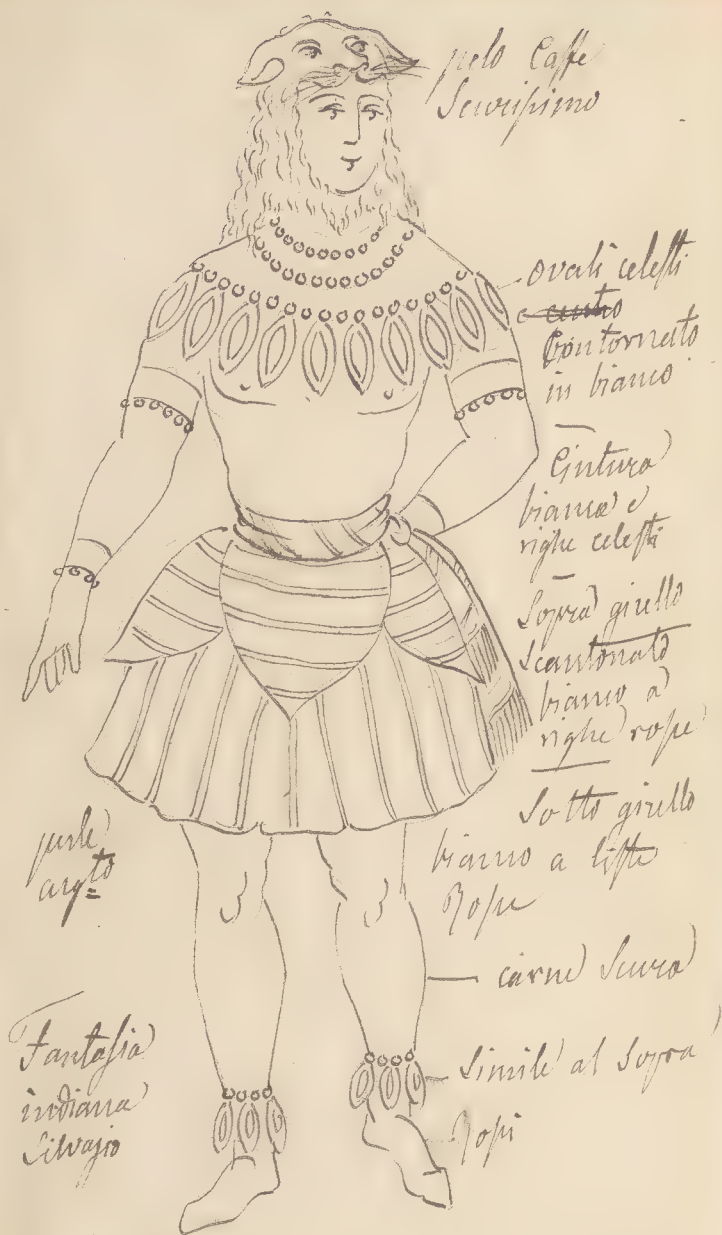 pelo Caffe
Scurissimo
ovali celesti
e
Contornato
in bianco
Cintura
bianca e
righe celesti
Sopra girello
Scantonato
bianco a
righe rosse
Sotto girello
bianco a liste
Rosse
perle
argto
carne Scura
Simile al Sopra
Rossi
Fantasia
indiana
Silvagio